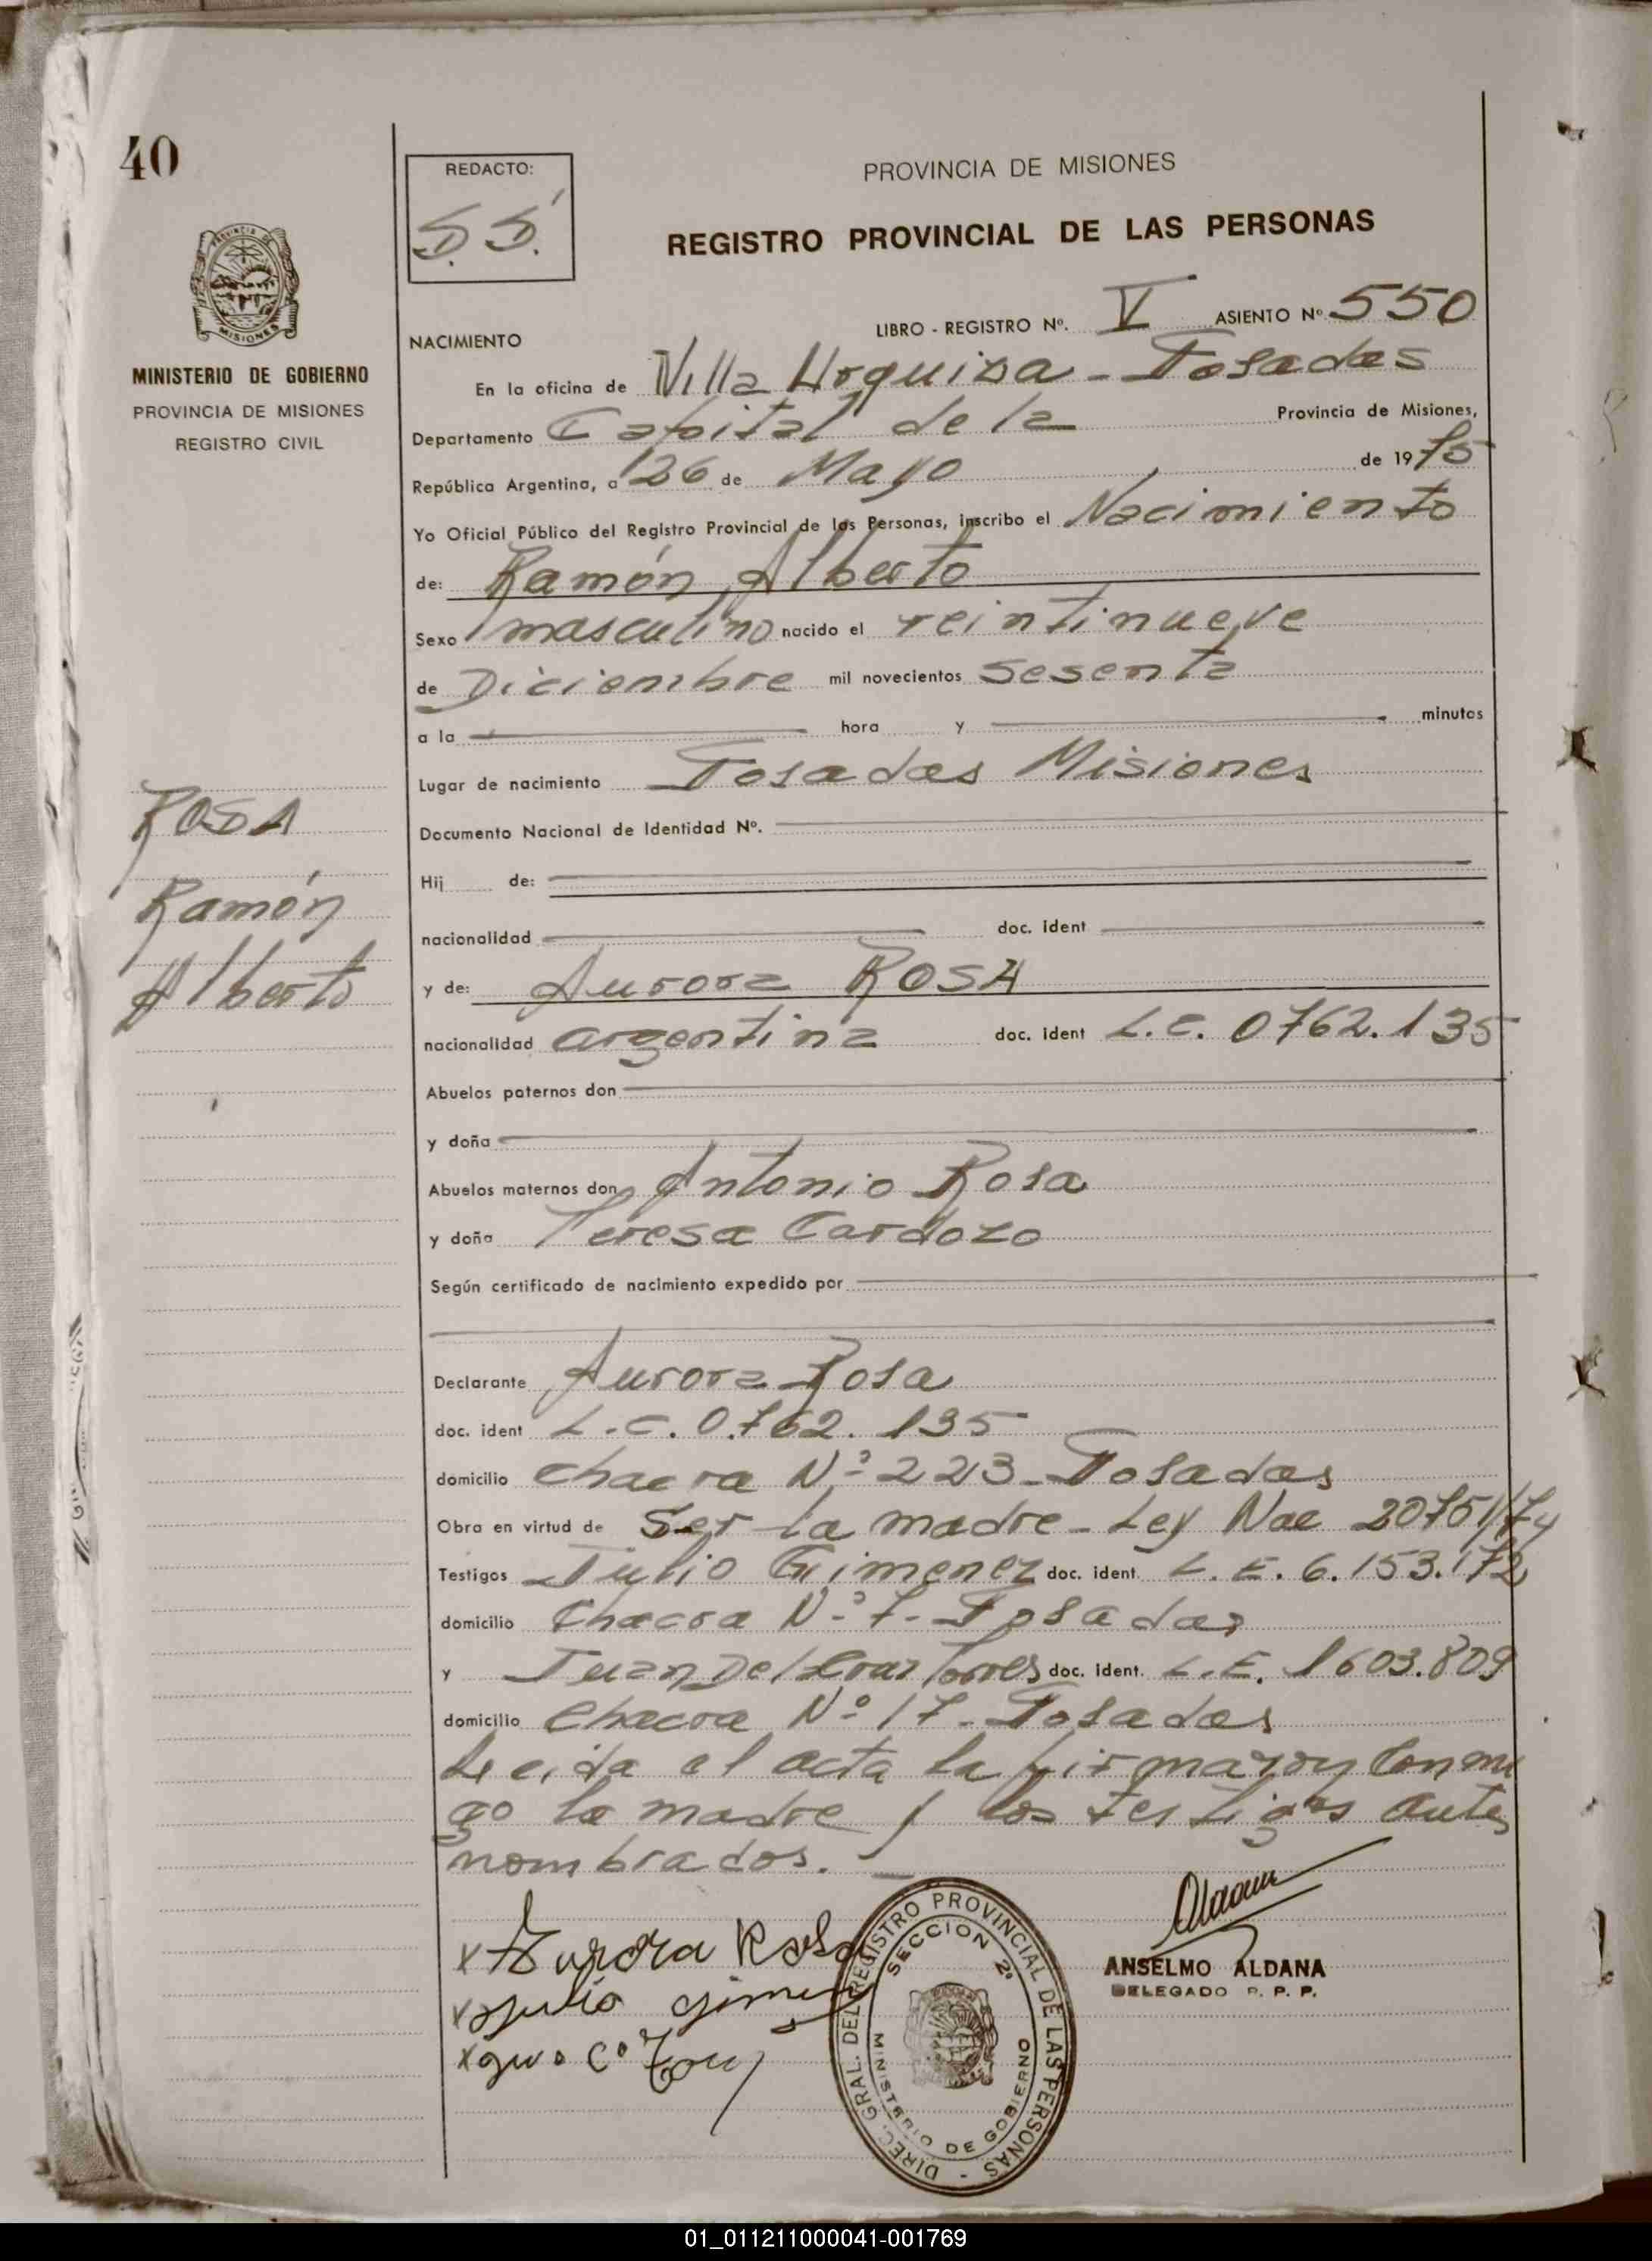 40
REDACTO:
PROVINCIA DE MISIONES
REGISTRO PROVINCIAL DE LAS PERSONAS
LIBRO - REGISTRO Nº. V ASIENTO Nº 550
NACIMIENTO
MINISTERIO DE GOBIERNO
PROVINCIA DE MISIONES
REGISTRO CIVIL
En la oficina de Villa Urquiza - Posadas
Departamento Capital de la Provincia de Misiones,
República Argentina, a 26 de Mayo de 1975
Yo Oficial Público del Registro Provincial de las Personas, inscribo el Nacimiento
de: Ramón Alberto
Sexo masculino nacido el veintinueve
de Diciembre mil novecientos sesenta
a la hora y minutos
Lugar de nacimiento Posadas Misiones
Documento Nacional de Identidad Nº.
Hij de:
nacionalidad doc. ident
y de: Aurora ROSA
nacionalidad argentina doc. ident L.C. 0762.135
Abuelos paternos don
y doña
Abuelos maternos don Antonio Rosa
y doña Teresa Cardozo
Según certificado de nacimiento expedido por
Declarante Aurora Rosa
doc. ident L.C. 0.762.135
domicilio Chacra Nº 223 - Posadas
Obra en virtud de Ser la madre - Ley Nac 20751/74
Testigos Julio Gimenez doc. ident. L.E. 6.153.172
domicilio Chacra Nº 7 - Posadas
y Juan Del Cruz Torres doc. ident. L.E. 1603.809
domicilio Chacra Nº 17 - Posadas
Leida el acta la firmaron conmi
go la madre y los testigos antes
nombrados.
ROSA
Ramón
Alberto
x Aurora Rosa
x Julio Gimenez
DIREC. GRAL. DEL REGISTRO PROVINCIAL DE LAS PERSONAS -
SECCION 2ª
MINISTERIO DE GOBIERNO
ANSELMO ALDANA
DELEGADO R. P. P.
01_011211000041-001769